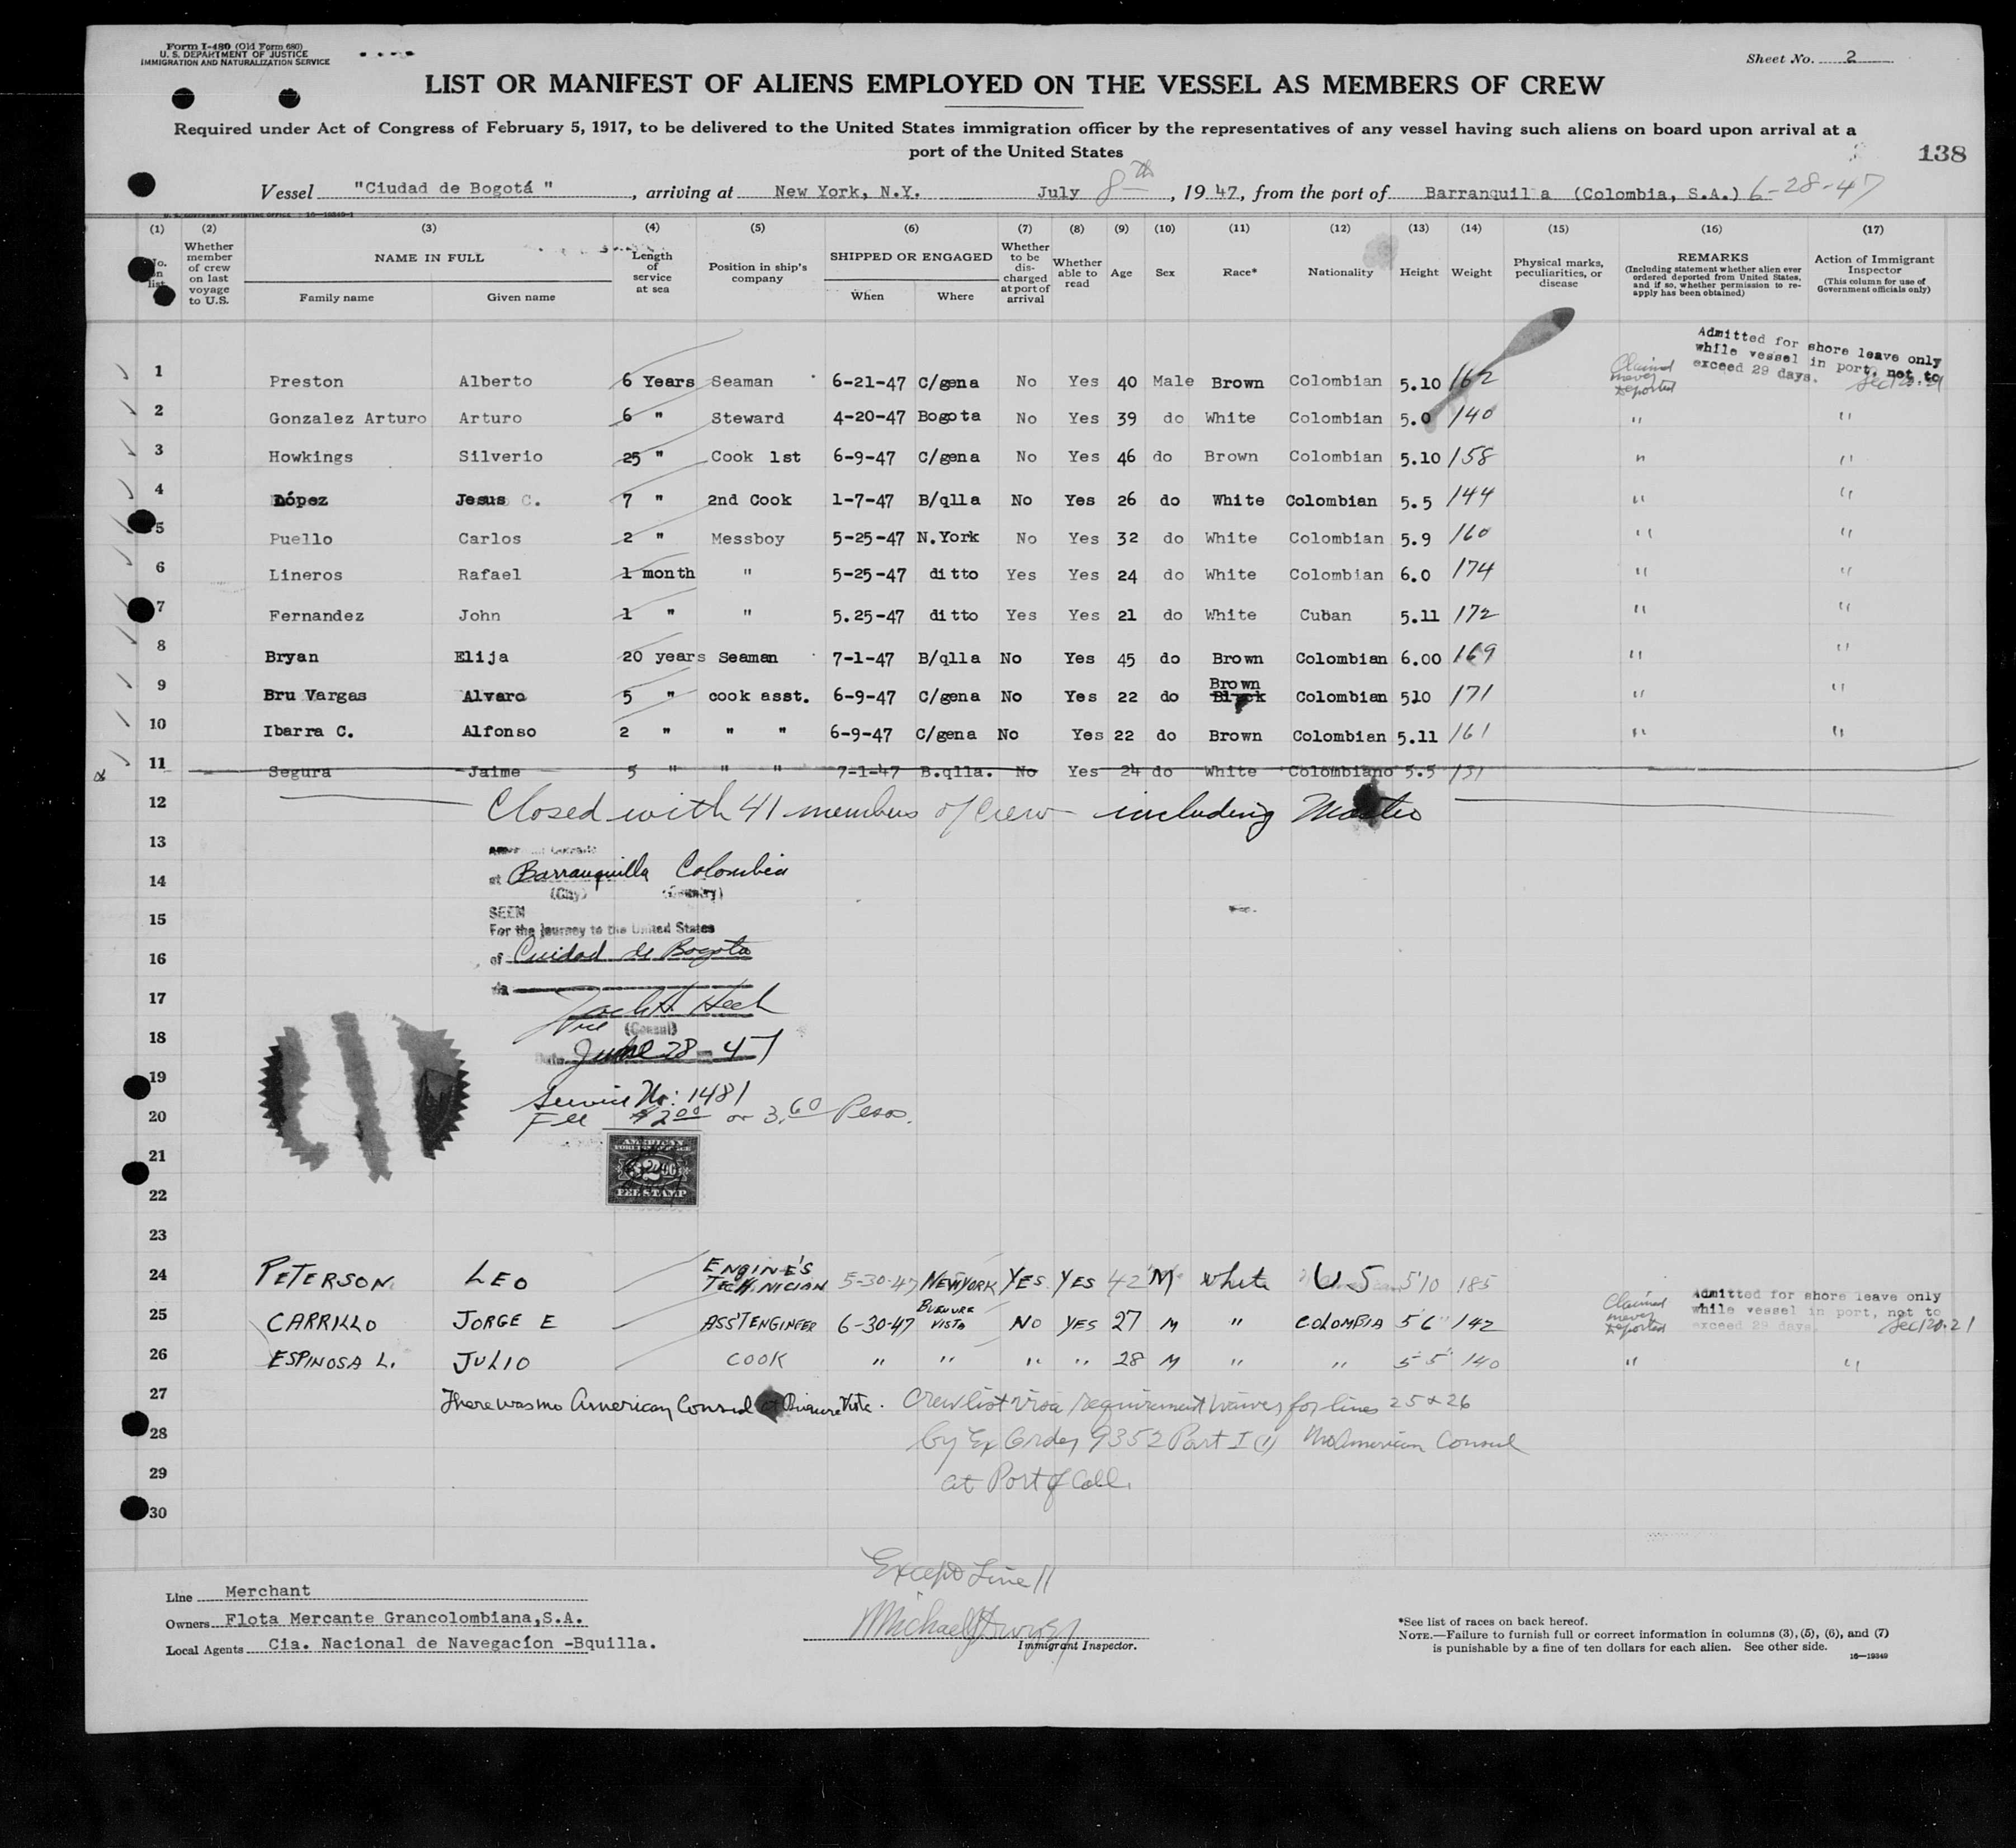 Form I-480 (Old Form 680)
U. S. DEPARTMENT OF JUSTICE
IMMIGRATION AND NATURALIZATION SERVICE
Sheet No. 2
LIST OR MANIFEST OF ALIENS EMPLOYED ON THE VESSEL AS MEMBERS OF CREW
Required under Act of Congress of February 5, 1917, to be delivered to the United States immigration officer by the representatives of any vessel having such aliens on board upon arrival at a
port of the United States
138
Vessel "Ciudad de Bogotá ", arriving at New York, N.Y. July 8th, 1947, from the port of Barranquilla (Colombia, S.A.) 6-28-47
U. S. GOVERNMENT PRINTING OFFICE 16—19349-1
(1) (2) (3) (4) (5) (6) (7) (8) (9) (10) (11) (12) (13) (14) (15) (16) (17)
No. on list
Whether member of crew on last voyage to U.S.
NAME IN FULL
Family name Given name
Length of service at sea
Position in ship's company
SHIPPED OR ENGAGED
When Where
Whether to be discharged at port of arrival
Whether able to read
Age Sex Race* Nationality Height Weight
Physical marks, peculiarities, or disease
REMARKS
(Including statement whether alien ever ordered deported from United States, and if so, whether permission to re-apply has been obtained)
Action of Immigrant Inspector
(This column for use of Government officials only)
Admitted for shore leave only
while vessel in port, not to
exceed 29 days. Sec 120.21
Claimed never deported
1 Preston Alberto 6 Years Seaman 6-21-47 C/gena No Yes 40 Male Brown Colombian 5.10 162
2 Gonzalez Arturo Arturo 6 " Steward 4-20-47 Bogota No Yes 39 do White Colombian 5.0 140 " "
3 Howkings Silverio 25 " Cook 1st 6-9-47 C/gena No Yes 46 do Brown Colombian 5.10 158 " "
4 López Jesus C. 7 " 2nd Cook 1-7-47 B/qlla No Yes 26 do White Colombian 5.5 144 " "
5 Puello Carlos 2 " Messboy 5-25-47 N.York No Yes 32 do White Colombian 5.9 160 " "
6 Lineros Rafael 1 month " 5-25-47 ditto Yes Yes 24 do White Colombian 6.0 174 " "
7 Fernandez John 1 " " 5.25-47 ditto Yes Yes 21 do White Cuban 5.11 172 " "
8 Bryan Elija 20 years Seaman 7-1-47 B/qlla No Yes 45 do Brown Colombian 6.00 169 " "
9 Bru Vargas Alvaro 5 " cook asst. 6-9-47 C/gena No Yes 22 do Brown Black Colombian 510 171 " "
10 Ibarra C. Alfonso 2 " " " 6-9-47 C/gena No Yes 22 do Brown Colombian 5.11 161 " "
11 Segura Jaime 5 " " " 7-1-47 B.qlla. No Yes 24 do White Colombiano 5.5 151
12 Closed with 41 members of Crew including Master
13
14 at Barranquilla Colombia
(City) (Country)
15 SEEN
For the journey to the United States
16 of Cuidad de Bogota
17
Vice (Consul)
18 Date June 28-47
19 Service No: 1481
20 Fee $2.00 or 3.60 Pesos.
21 AMERICAN FOREIGN SERVICE
$2.00
FEE STAMP
22
23
24 PETERSON LEO ENGINE'S TECHNICIAN 5-30-47 NEWYORK YES YES 42 M white U S 5'10 185
25 CARRILLO JORGE E ASS'T ENGINEER 6-30-47 BUENURE VISTA NO YES 27 M " COLOMBIA 5'6" 142 Claimed never deported Admitted for shore leave only while vessel in port, not to exceed 29 days. Sec 120.21
26 ESPINOSA L. JULIO COOK " " " " 28 M " " 5'5" 140 " "
27 There was no American Consul at Vista. Crew list visa requirement waived for lines 25 & 26
28 by Ex Order 9352 Part I (1) No American Consul
29 at Port of Call.
30
Except Line 11
Line Merchant
Owners Flota Mercante Grancolombiana,S.A.
Local Agents Cia. Nacional de Navegacíon -Bquilla.
Immigrant Inspector.
*See list of races on back hereof.
NOTE.—Failure to furnish full or correct information in columns (3), (5), (6), and (7)
is punishable by a fine of ten dollars for each alien. See other side.
16—19349